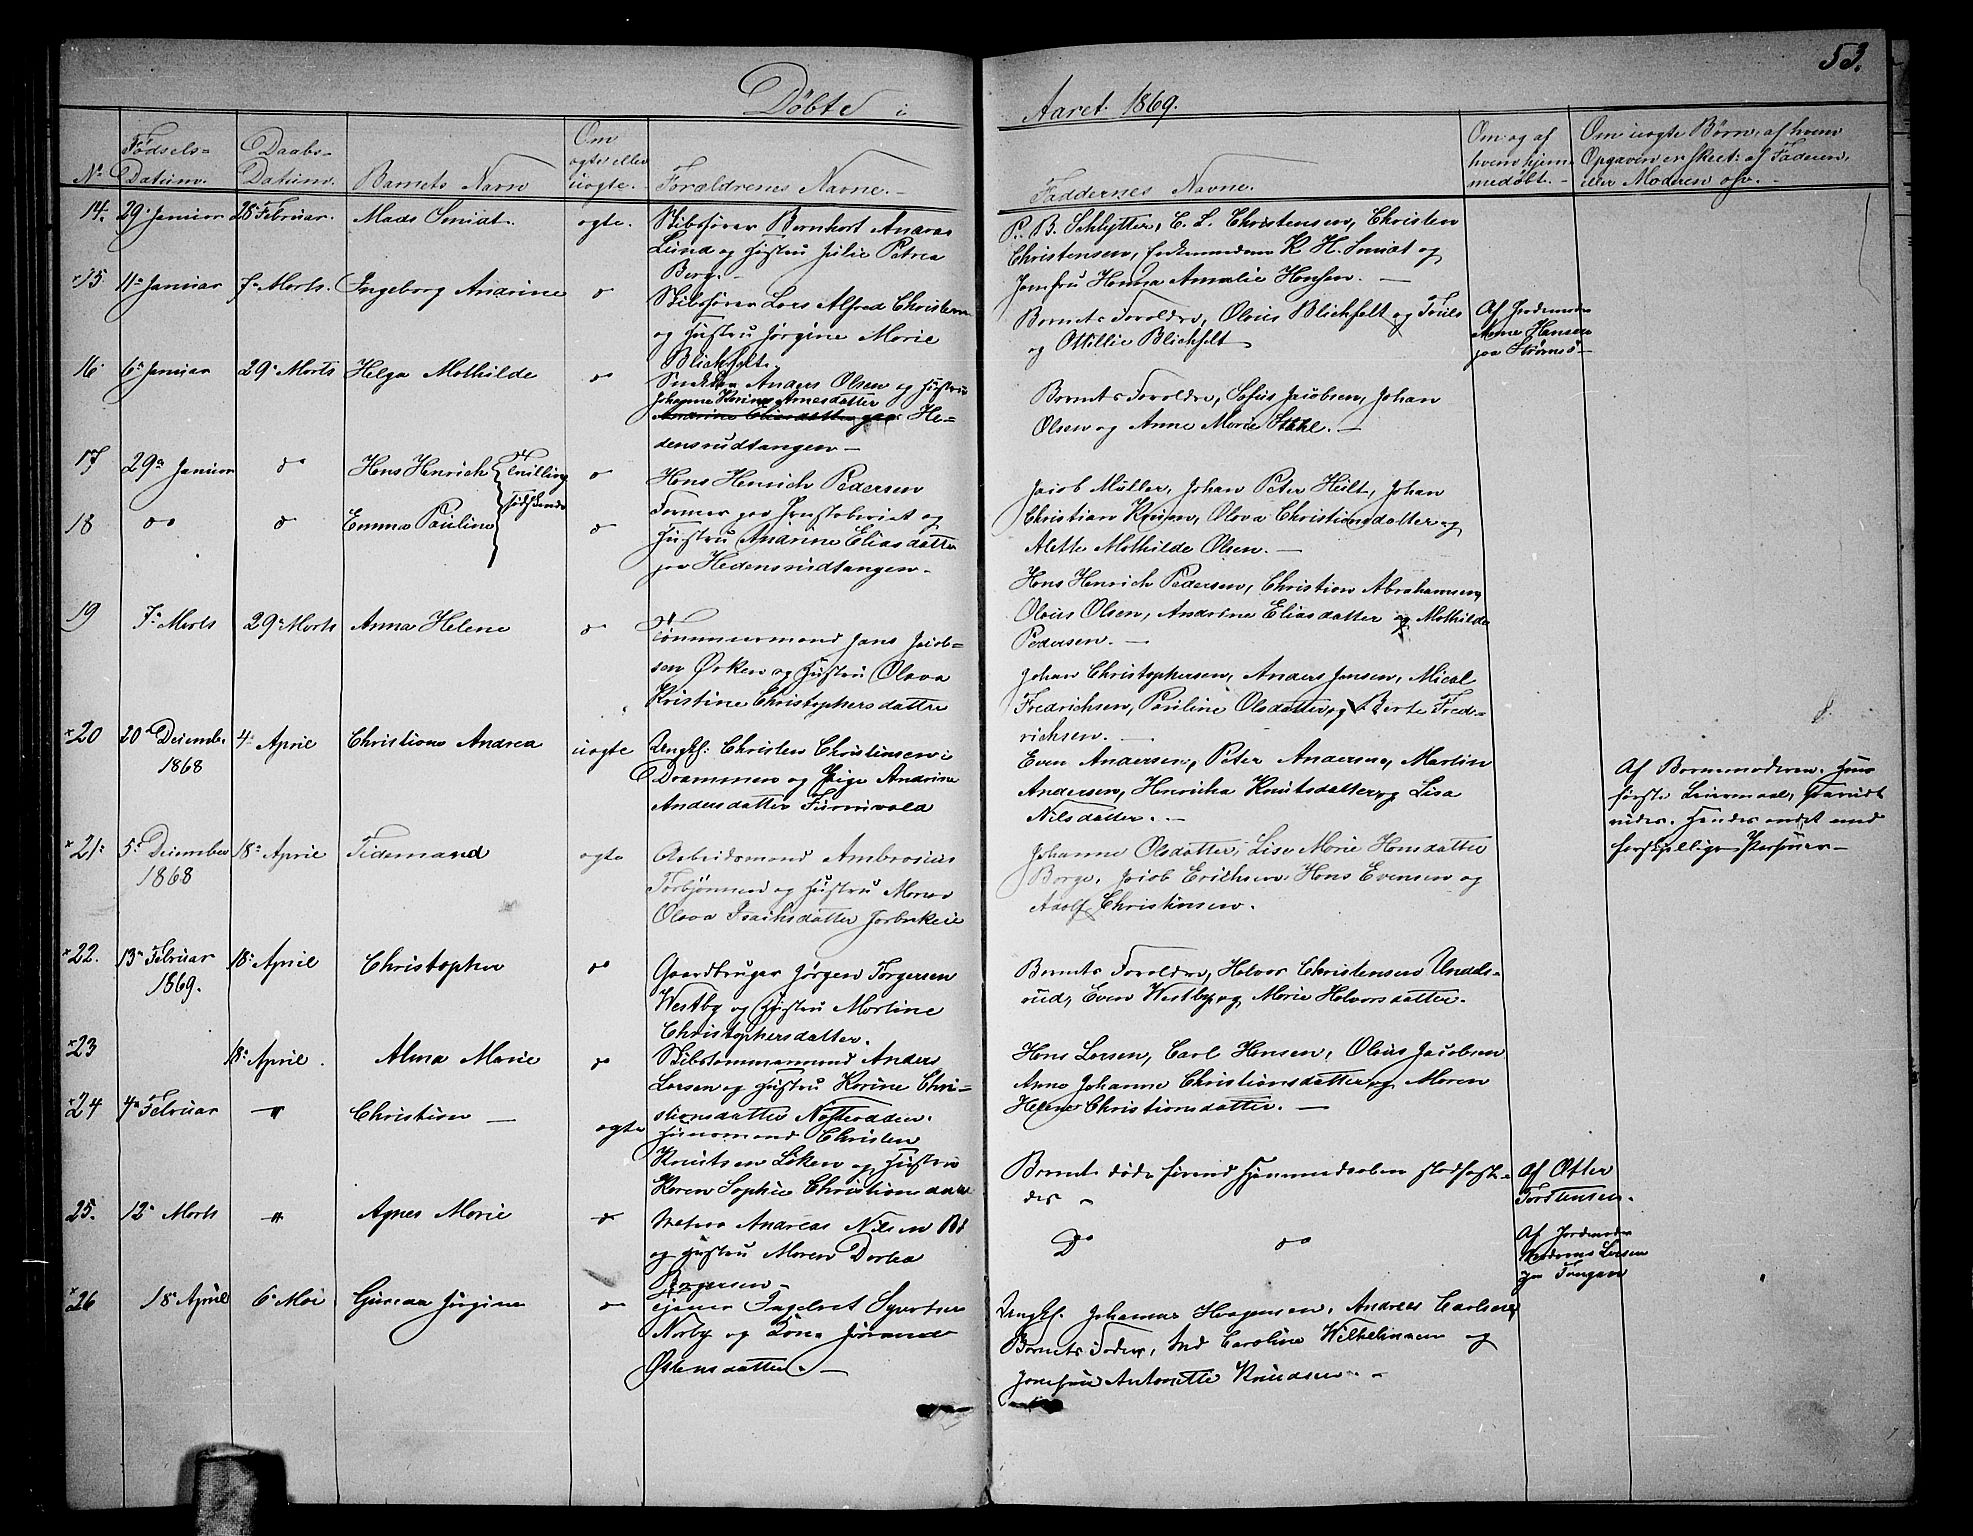 53.
Døbte i Aaret 1869.
No Fødsels-Datum. Daabs-Datum. Barnets Navn Om ægte eller uægte. Forældrenes Navne. Faddernes Navne. Om og af hvem hjemmedøbt. Om uægte Børn, af hvem Opgaven er skeet: af Faderen, eller Moderen osv.
14. 29. Januar 28 Februar. Mads Smidt. ægte. Skibsfører Bernhart Andreas
Lund og Hustru Julie Petrea
Berg.
P. B. Schlytter, C. L. Christensen, Christen
Christensen, K. H. Smidt og
Jomfru Hanna Amalie Hansen.
×15 11 Januar 7 Marts. Ingeborg Andrine do Skibsfører Lars Alfred Christensen
og Hustru Jørgine Marie
Blichfelt.
Barnets Forældre, Olaus Blichfelt og Frue
og Ottillie Blichfelt
Af Jordemoder
Anne Hansen
paa Strømsø
16 6 Januar 29 Marts Helga Mathilde do Anders Olsen og Hustru
Johanne Karine Arnesdatter
Andrine Eliasdatter paa He-
densrudtangen
Barnets Forældre, Sofus Jacobsen, Johan
Olsen og Anne Marie Stahl.
17 29 Januar do Hans Henrich Tvilling do Hans Henrich Pedersen
18 do do Emma Pauline Sødskende do Farmer paa og
Hustru Andrine Eliasdatter
paa Hedensrudtangen.
Jacob Müller, Johan Peter Hult, Johan
Christian Knusen, Olava Christiansdatter og
Alette Mathilde Olsen.
Hans Henrich Pedersen, Christian Abrahamsen,
Olaus Olsen, Andrine Eliasdatter og Mathilde
Pedersen.
19 7 Marts 29 Marts Anna Helene do Tømmermand Hans Jacob-
sen Ørken og Hustru Olava
Kristine Christophersdatter
Johan Christophersen, Anders Jensen, Micael
Fredrichsen, Pauline Olsdatter og Berte Fred-
richsen.
×20 20 Decembr 1868 4 April Christiane Andrea uægte Ungkl: Christen Christensen i
Drammen og Pige Andrine
Andersdatter Furuvald
Even Andersen, Peter Andersen, Martin
Andersen, Henricha Knutsdatter og Lisa
Nilsdatter.
Af Barnemoderen. Hans
første Leiermaal,
Hendes andet med
forskjellige Personer
×21 5 December 1868 18 April Tidemand ægte Arbeidsmand Ambrosius
Torbjørnsen og Hustru Maren
Olava Isachsdatter
Johanne Olsdatter, Lise Marie Hansdatter
Borge, Jacob Erichsen, Hans Evensen og
Adolf Christensen.
×22. 13 Februar 1869. 18 April Christopher do Gaardbruger Jørgen Torgersen
Westby og Hustru Martine
Christophersdatter.
Barnets Forældre, Halvor Christensen Undels-
rud, Even Westby og Marie Halvorsdatter.
×23 18 April. Alma Marie do Skibstømmermand Anders
Larsen og Hustru Karine Chri-
stiansdatter Nøsterodden.
Hans Larsen, Carl Hansen, Olaus Jacobsen
Anne Johanne Christiansdatter og Maren
Helene Christiansdatter.
×24 4 Februar " Christian ægte Huusmand Christen
Knutsen Løken og Hustru
Karen Sophie Christiansdatter
Barnet døde førend Hjemmedaaben stadfæste-
des
Af Otter
Torstensen.
25. 12 Marts " Agnes Marie do Matros Andreas Nilsen Bö
og Hustru Maren Dorthea
Børgersen
Do do
Af Jordemoder
Larsen
paa Tangen
×26 18 April 6 Mai Gunda Jørgine do Ingebret Syvertsen
Narby og Kone Jørande
Østensdatter.
Ungkl. Johannes Haagensen, Andreas Carlsen,
Barnets Fader, Md Caroline Wilhelmsen og
Jomfru Antonette Knudsen.